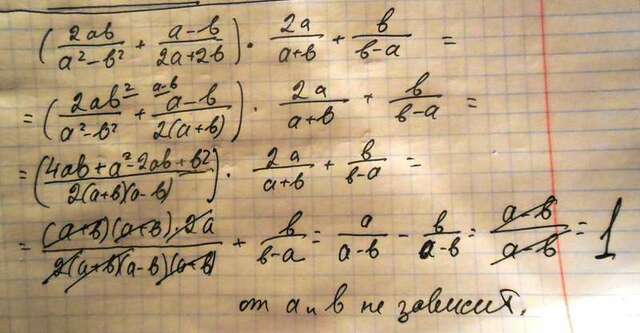 (2ab/(a²-b²) + (a-b)/(2a+2b)) · 2a/(a+b) + b/(b-a) =
= (2ab^2/(a²-b²) + (a-b)^(a-b)/(2(a+b))) · 2a/(a+b) + b/(b-a) =
= ((4ab+a²-2ab+b²)/(2(a+b)(a-b))) · 2a/(a+b) + b/(b-a) =
= ((a+b)(a+b)·2a)/(2(a+b)(a-b)(a+b)) + b/(b-a) = a/(a-b) - b/(a-b) = (a-b)/(a-b) = 1
от a и b не зависит.